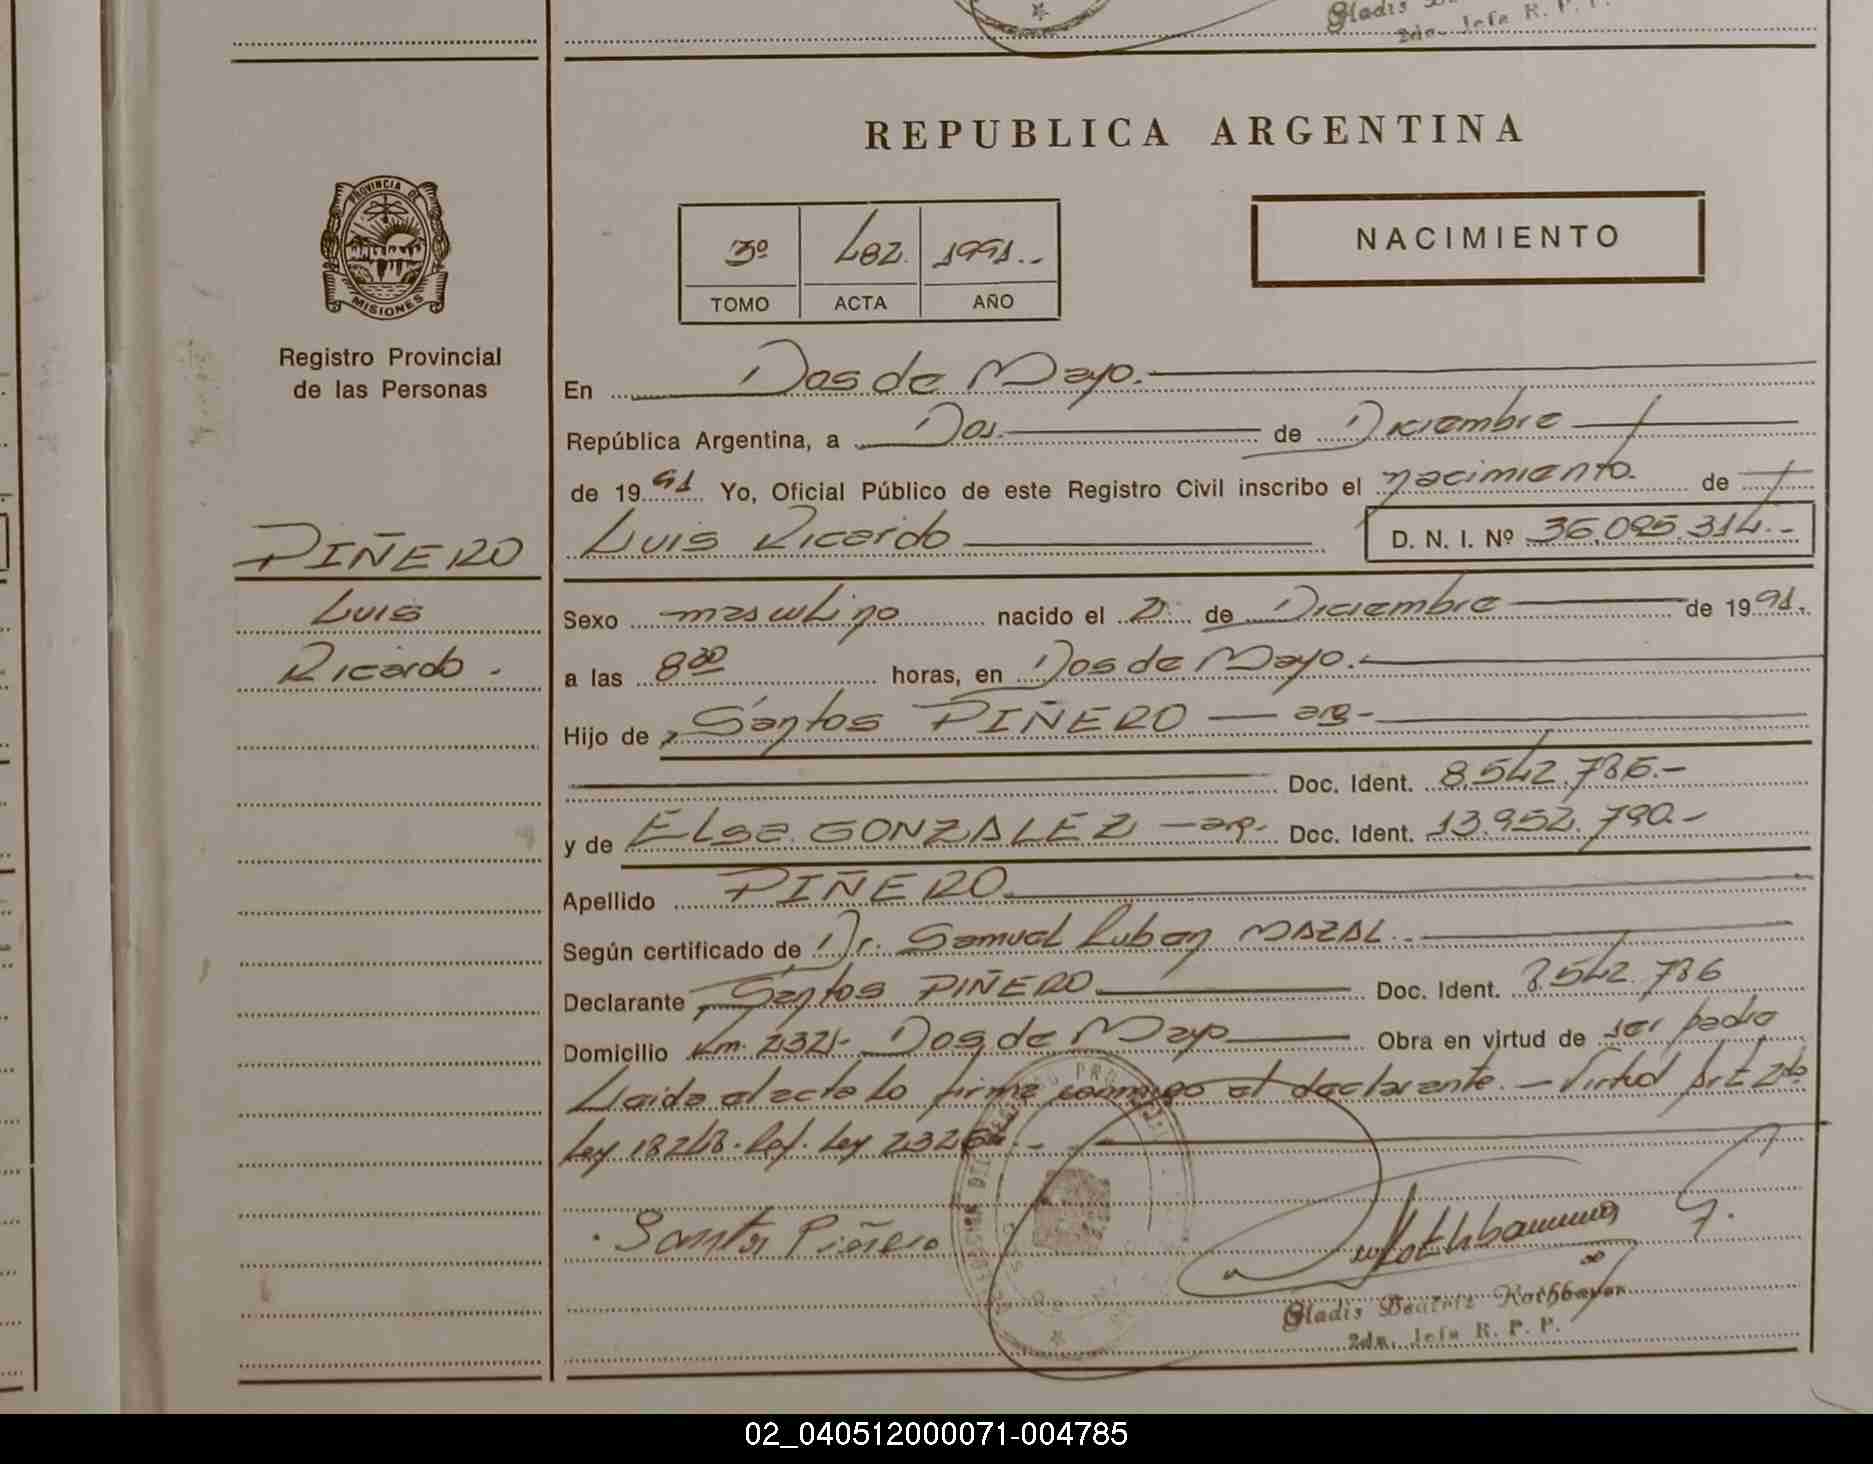 Gladis
2da. Jefa R. P. P.
REPUBLICA ARGENTINA
PROVINCIA DE
MISIONES
Registro Provincial
de las Personas
3º 482. 1991.-
TOMO ACTA AÑO
NACIMIENTO
En Dos de Mayo.
República Argentina, a Dos. de Diciembre
de 1991 Yo, Oficial Público de este Registro Civil inscribo el nacimiento. de
PIÑERO
Luis
Ricardo.
Luis Ricardo D. N. I. Nº 36.095.314.-
Sexo masculino nacido el 2. de Diciembre de 1991.
a las 8³⁰ horas, en Dos de Mayo.
Hijo de Santos PIÑERO — arg-
Doc. Ident. 8.542.786.-
y de Elsa GONZALEZ — arg- Doc. Ident. 13.952.790.-
Apellido PIÑERO.
Según certificado de Dr. Samuel Ruben MAZAL.
Declarante Santos PIÑERO Doc. Ident. 8.542.786
Domicilio Km. Dos de Mayo Obra en virtud de ser padre
Leida el acta la firma conmigo el declarante. — Virtud Art 2do
Ley 18248. Ley
Santos Piñero
Gladis Beatriz Rothbauer
2da. Jefa R. P. P.
02_040512000071-004785